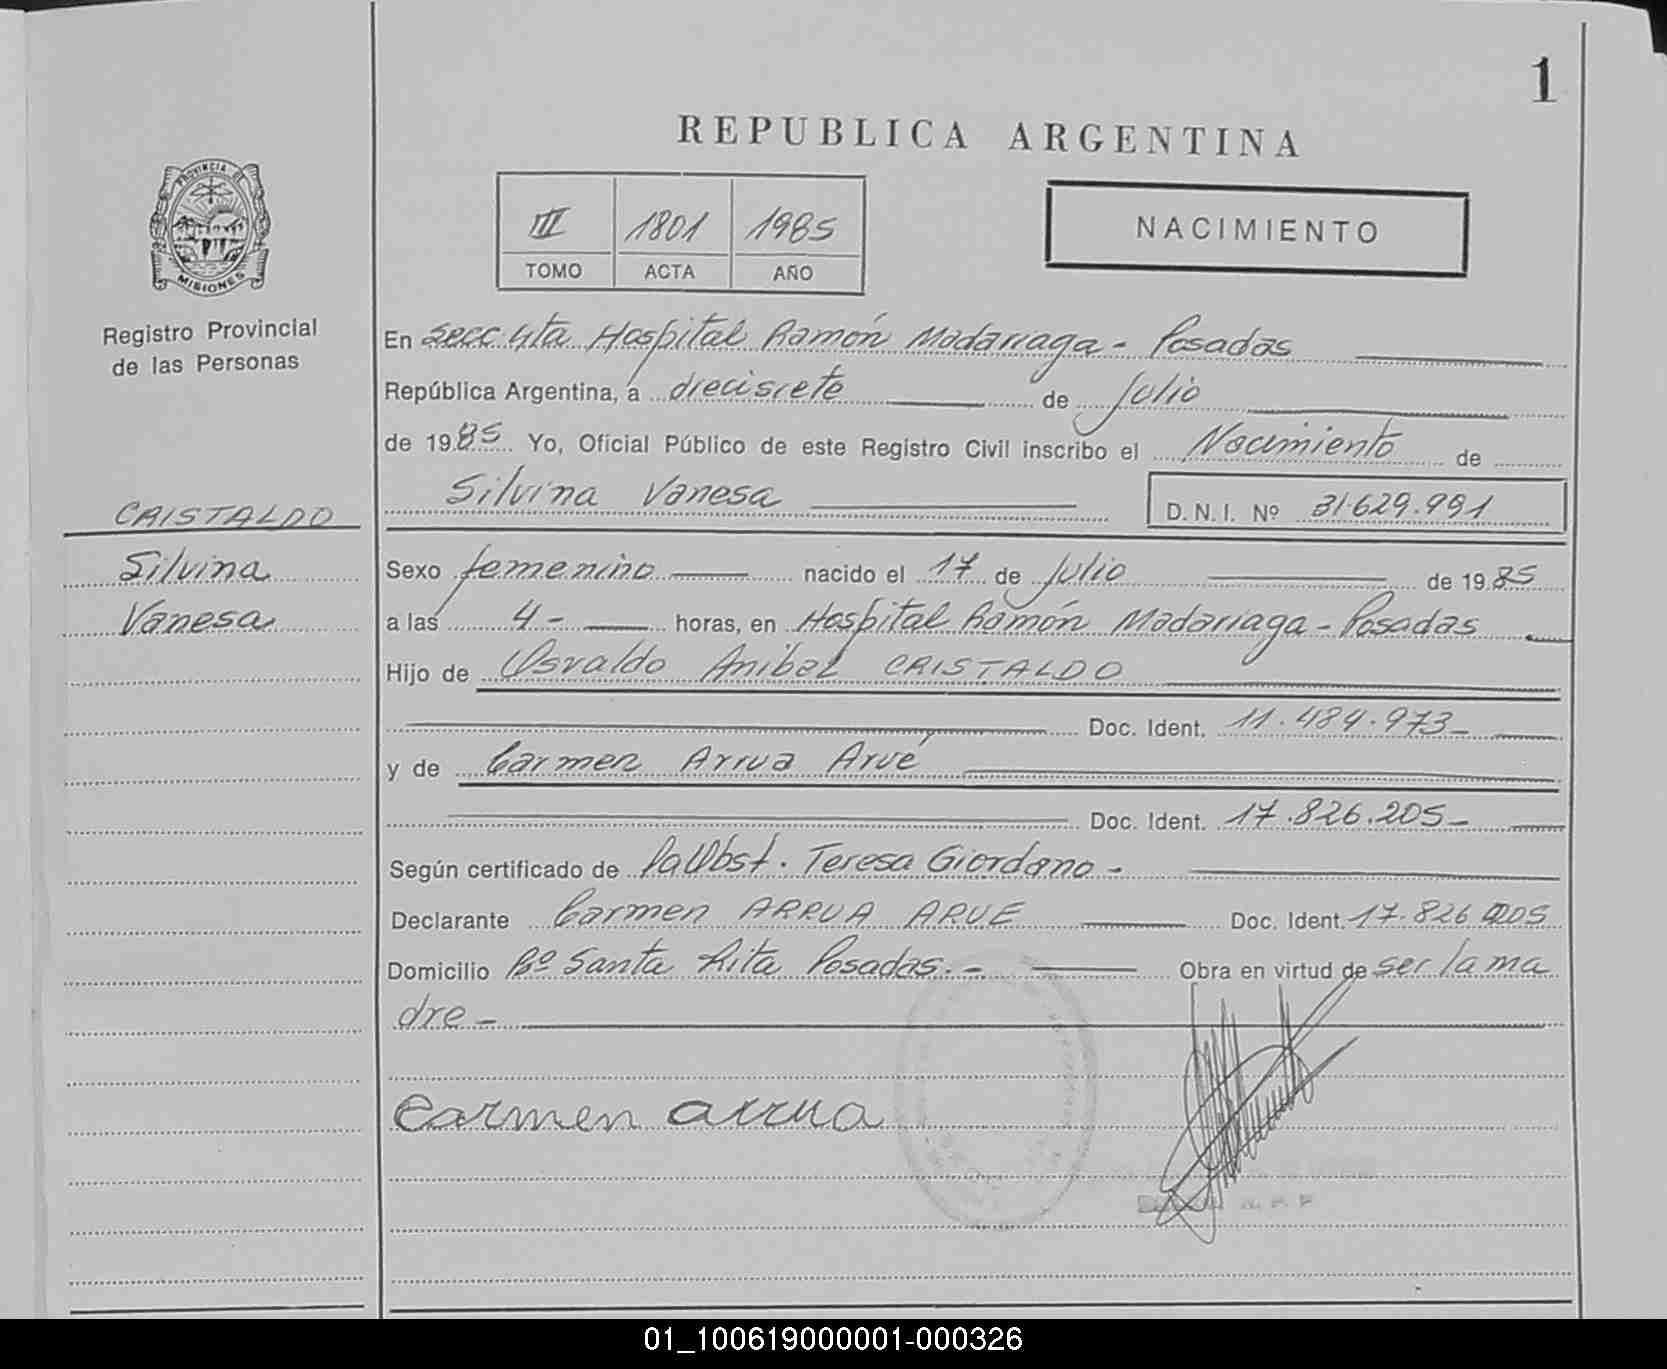 1
REPUBLICA ARGENTINA
PROVINCIA DE
MISIONES
Registro Provincial
de las Personas
III 1801 1985
TOMO ACTA AÑO
NACIMIENTO
En Secc. 4ta Hospital Ramón Madariaga - Posadas
República Argentina, a diecisiete de Julio
de 1985 Yo, Oficial Público de este Registro Civil inscribo el Nacimiento de
Silvina Vanesa D.N.I. Nº 31.629.991
CRISTALDO
Silvina
Vanesa
Sexo femenino nacido el 17 de Julio de 1985
a las 4 - horas, en Hospital Ramón Madariaga - Posadas
Hijo de Osvaldo Anibal CRISTALDO
Doc. Ident. 11.484.973 -
y de Carmen Arrua Arué
Doc. Ident. 17.826.205 -
Según certificado de Teresa Giordano -
Declarante Carmen ARRUA ARUE Doc. Ident. 17.826.205
Domicilio Bº Santa Rita Posadas. - Obra en virtud de ser la ma
dre -
Carmen arrua
01_100619000001-000326